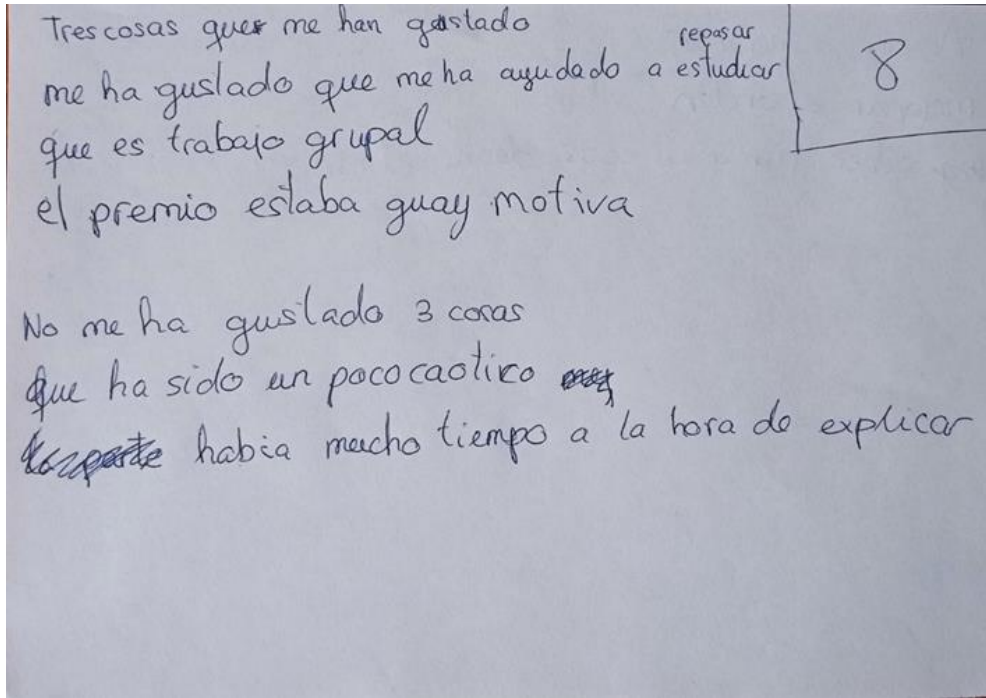 Tres cosas que me han gustado
repasar
me ha gustado que me ha ayudado a estudiar
8
que es trabajo grupal
el premio estaba guay motiva
No me ha gustado 3 cosas
que ha sido un poco caotico
habia mucho tiempo a la hora de explicar